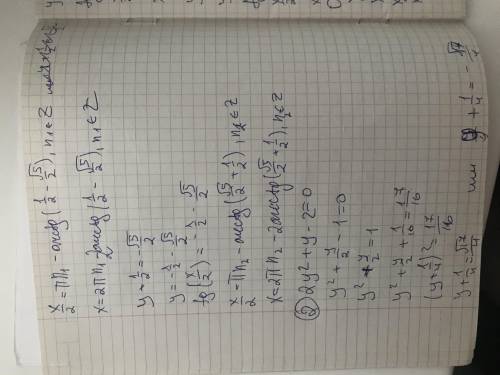 x/2 = πn₁ - arctg (1/2 - √5/2), n₁ ∈ Z
x = 2πn₁ - 2arctg (1/2 - √5/2), n₁ ∈ Z
y + 1/2 = -√5/2
y = -1/2 - √5/2
tg(x/2) = -1/2 - √5/2
x/2 = πn₂ - arctg (√5/2 + 1/2), n₂ ∈ Z
x = 2πn₂ - 2arctg (√5/2 + 1/2), n₂ ∈ Z
② 2y² + y - 2 = 0
y² + y/2 - 1 = 0
y² + y/2 = 1
y² + y/2 + 1/16 = 17/16
(y + 1/4)² = 17/16
y + 1/4 = √17/4 или y + 1/4 = -√17/4